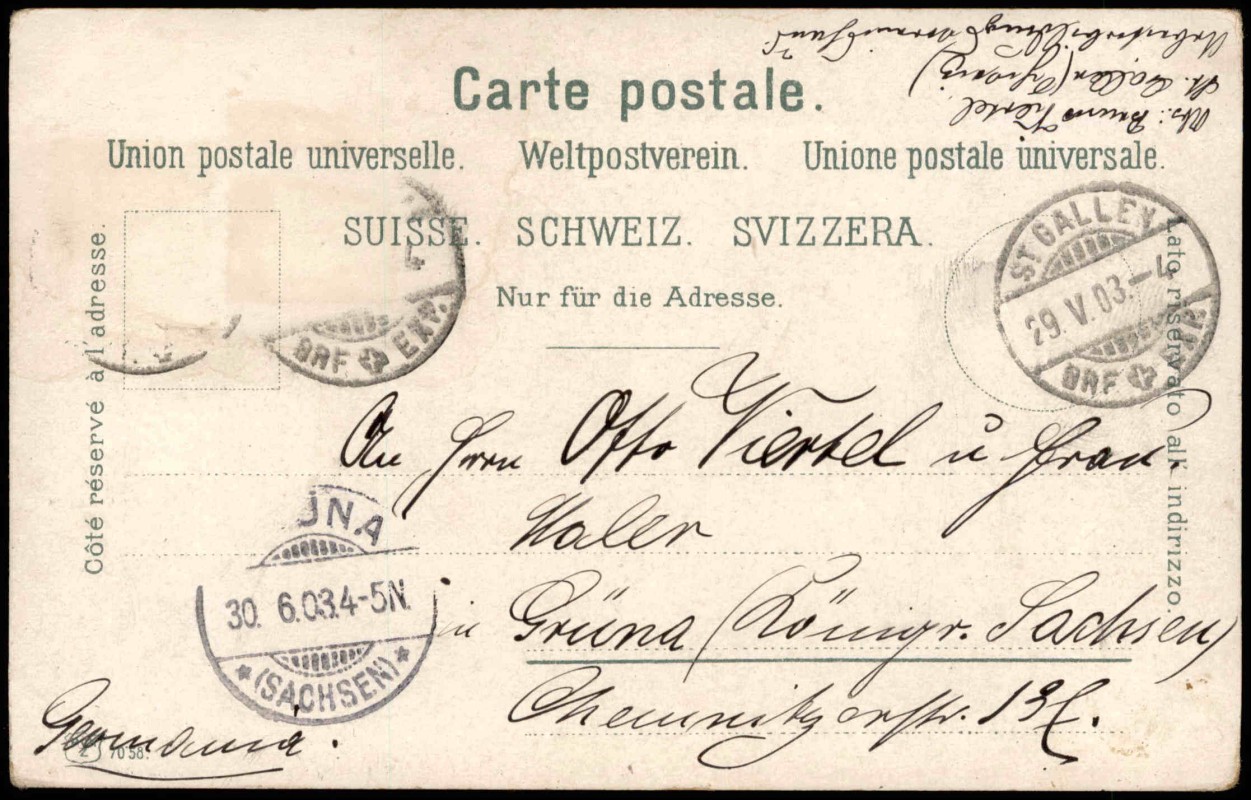 Abs.: Bruno Viertel
St. Gallen (Schweiz)
Carte postale.
Union postale universelle. Weltpostverein. Unione postale universale.
SUISSE. SCHWEIZ. SVIZZERA.
Nur für die Adresse.
Côté réservé à l'adresse.
Lato riservato all' indirizzo.
BRF. EXP.
ST. GALLEN
29. V. 03.–4
BRF. EXP.
An Herrn Otto Viertel u Frau.
Maler
in Grüna (Königr. Sachsen)
Chemnitzerstr.
ÜNA
30. 6.03.4-5N.
* (SACHSEN) *
Germania.
7058.